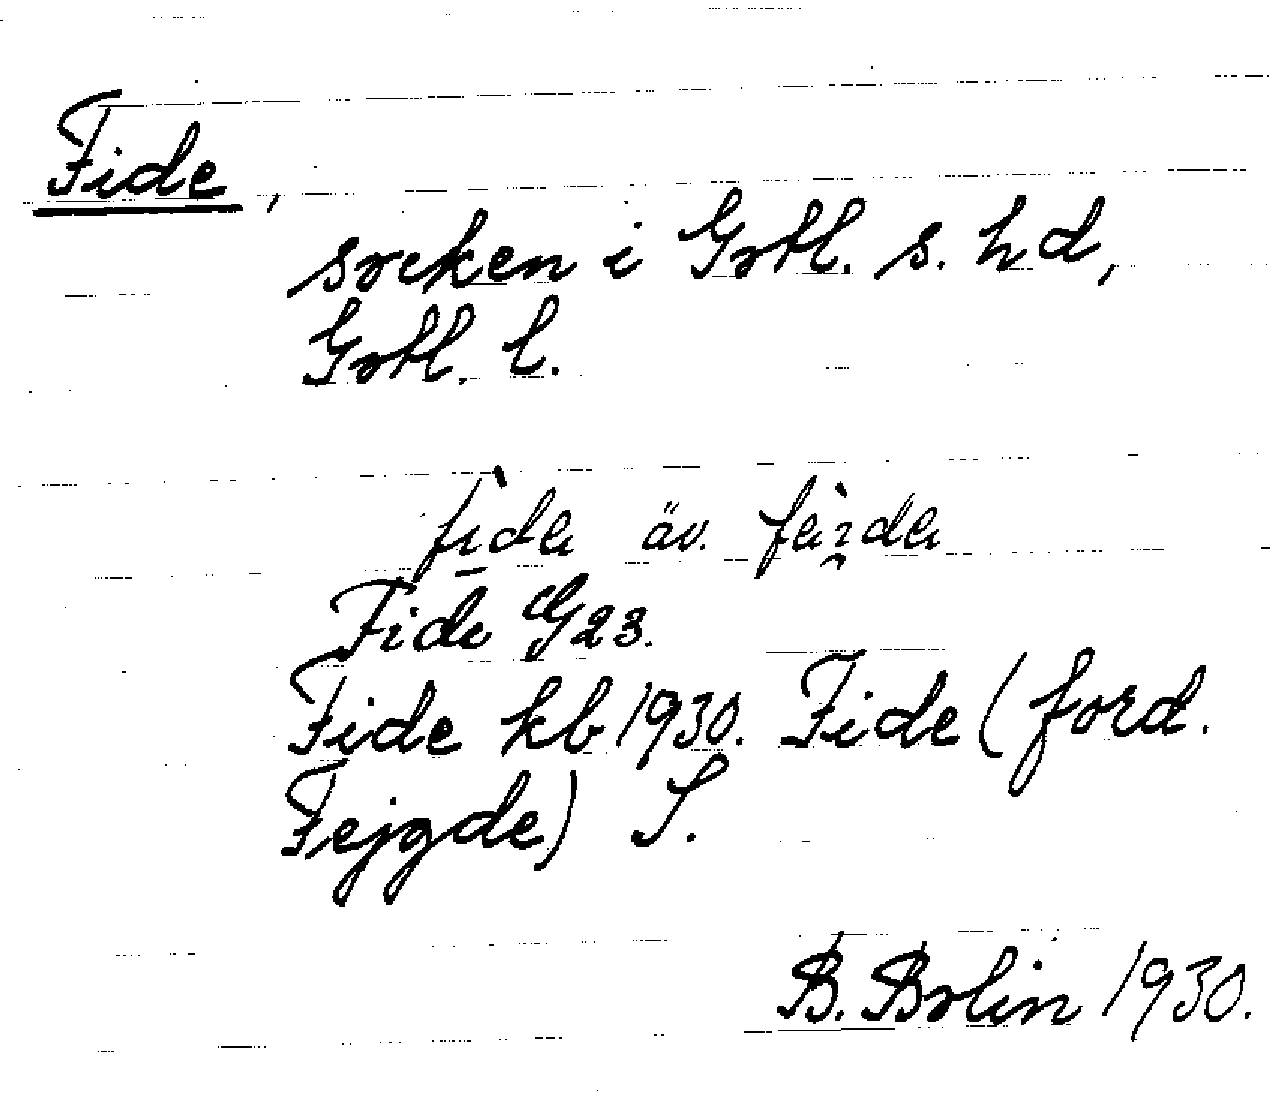 Fide,
socken i Gotl. s. hd,
Gotl. l.
fìda äv. fàida
Fide G23.
Fide kb 1930. Fide (ford.
Fejgde) S.
B. Bolin 1930.